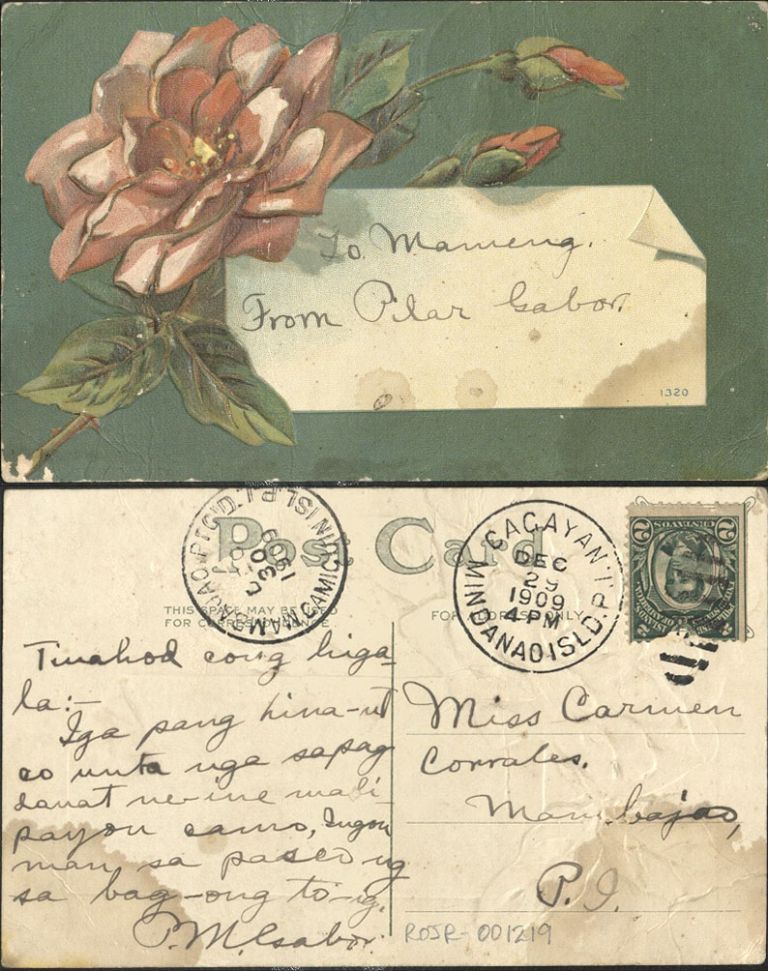 To Mameng.
From Pilar Gabor.
1320
Post Card
THIS SPACE MAY BE USED
FOR CORRESPONDENCE
FOR ADDRESS ONLY
MAMBAJAO, CAMIGUIN ISL. P.I.
DEC
30
1909
CAGAYAN, MINDANAO ISLD. P.I.
DEC
29
1909
4 PM
2 CENTAVOS 2
Tinahod cong higa-
la:-
Iga pang hina-ut
co unta nga sapag
danat ne-ine mali-
payon camo, Ingon
man sa pasco ug
sa bag-ong to-ig.
P. M. Gabor.
Miss Carmen
Corrales.
Mambajao,
P. I.
ROJR-001219